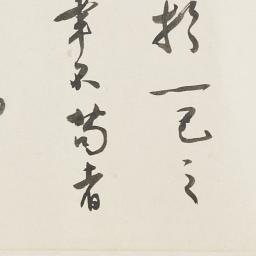 於一己之
率不苟者